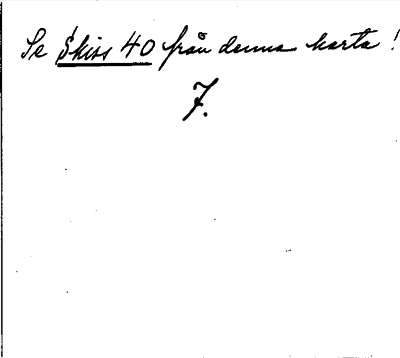 Se Skiss 40 från denna karta!
7.